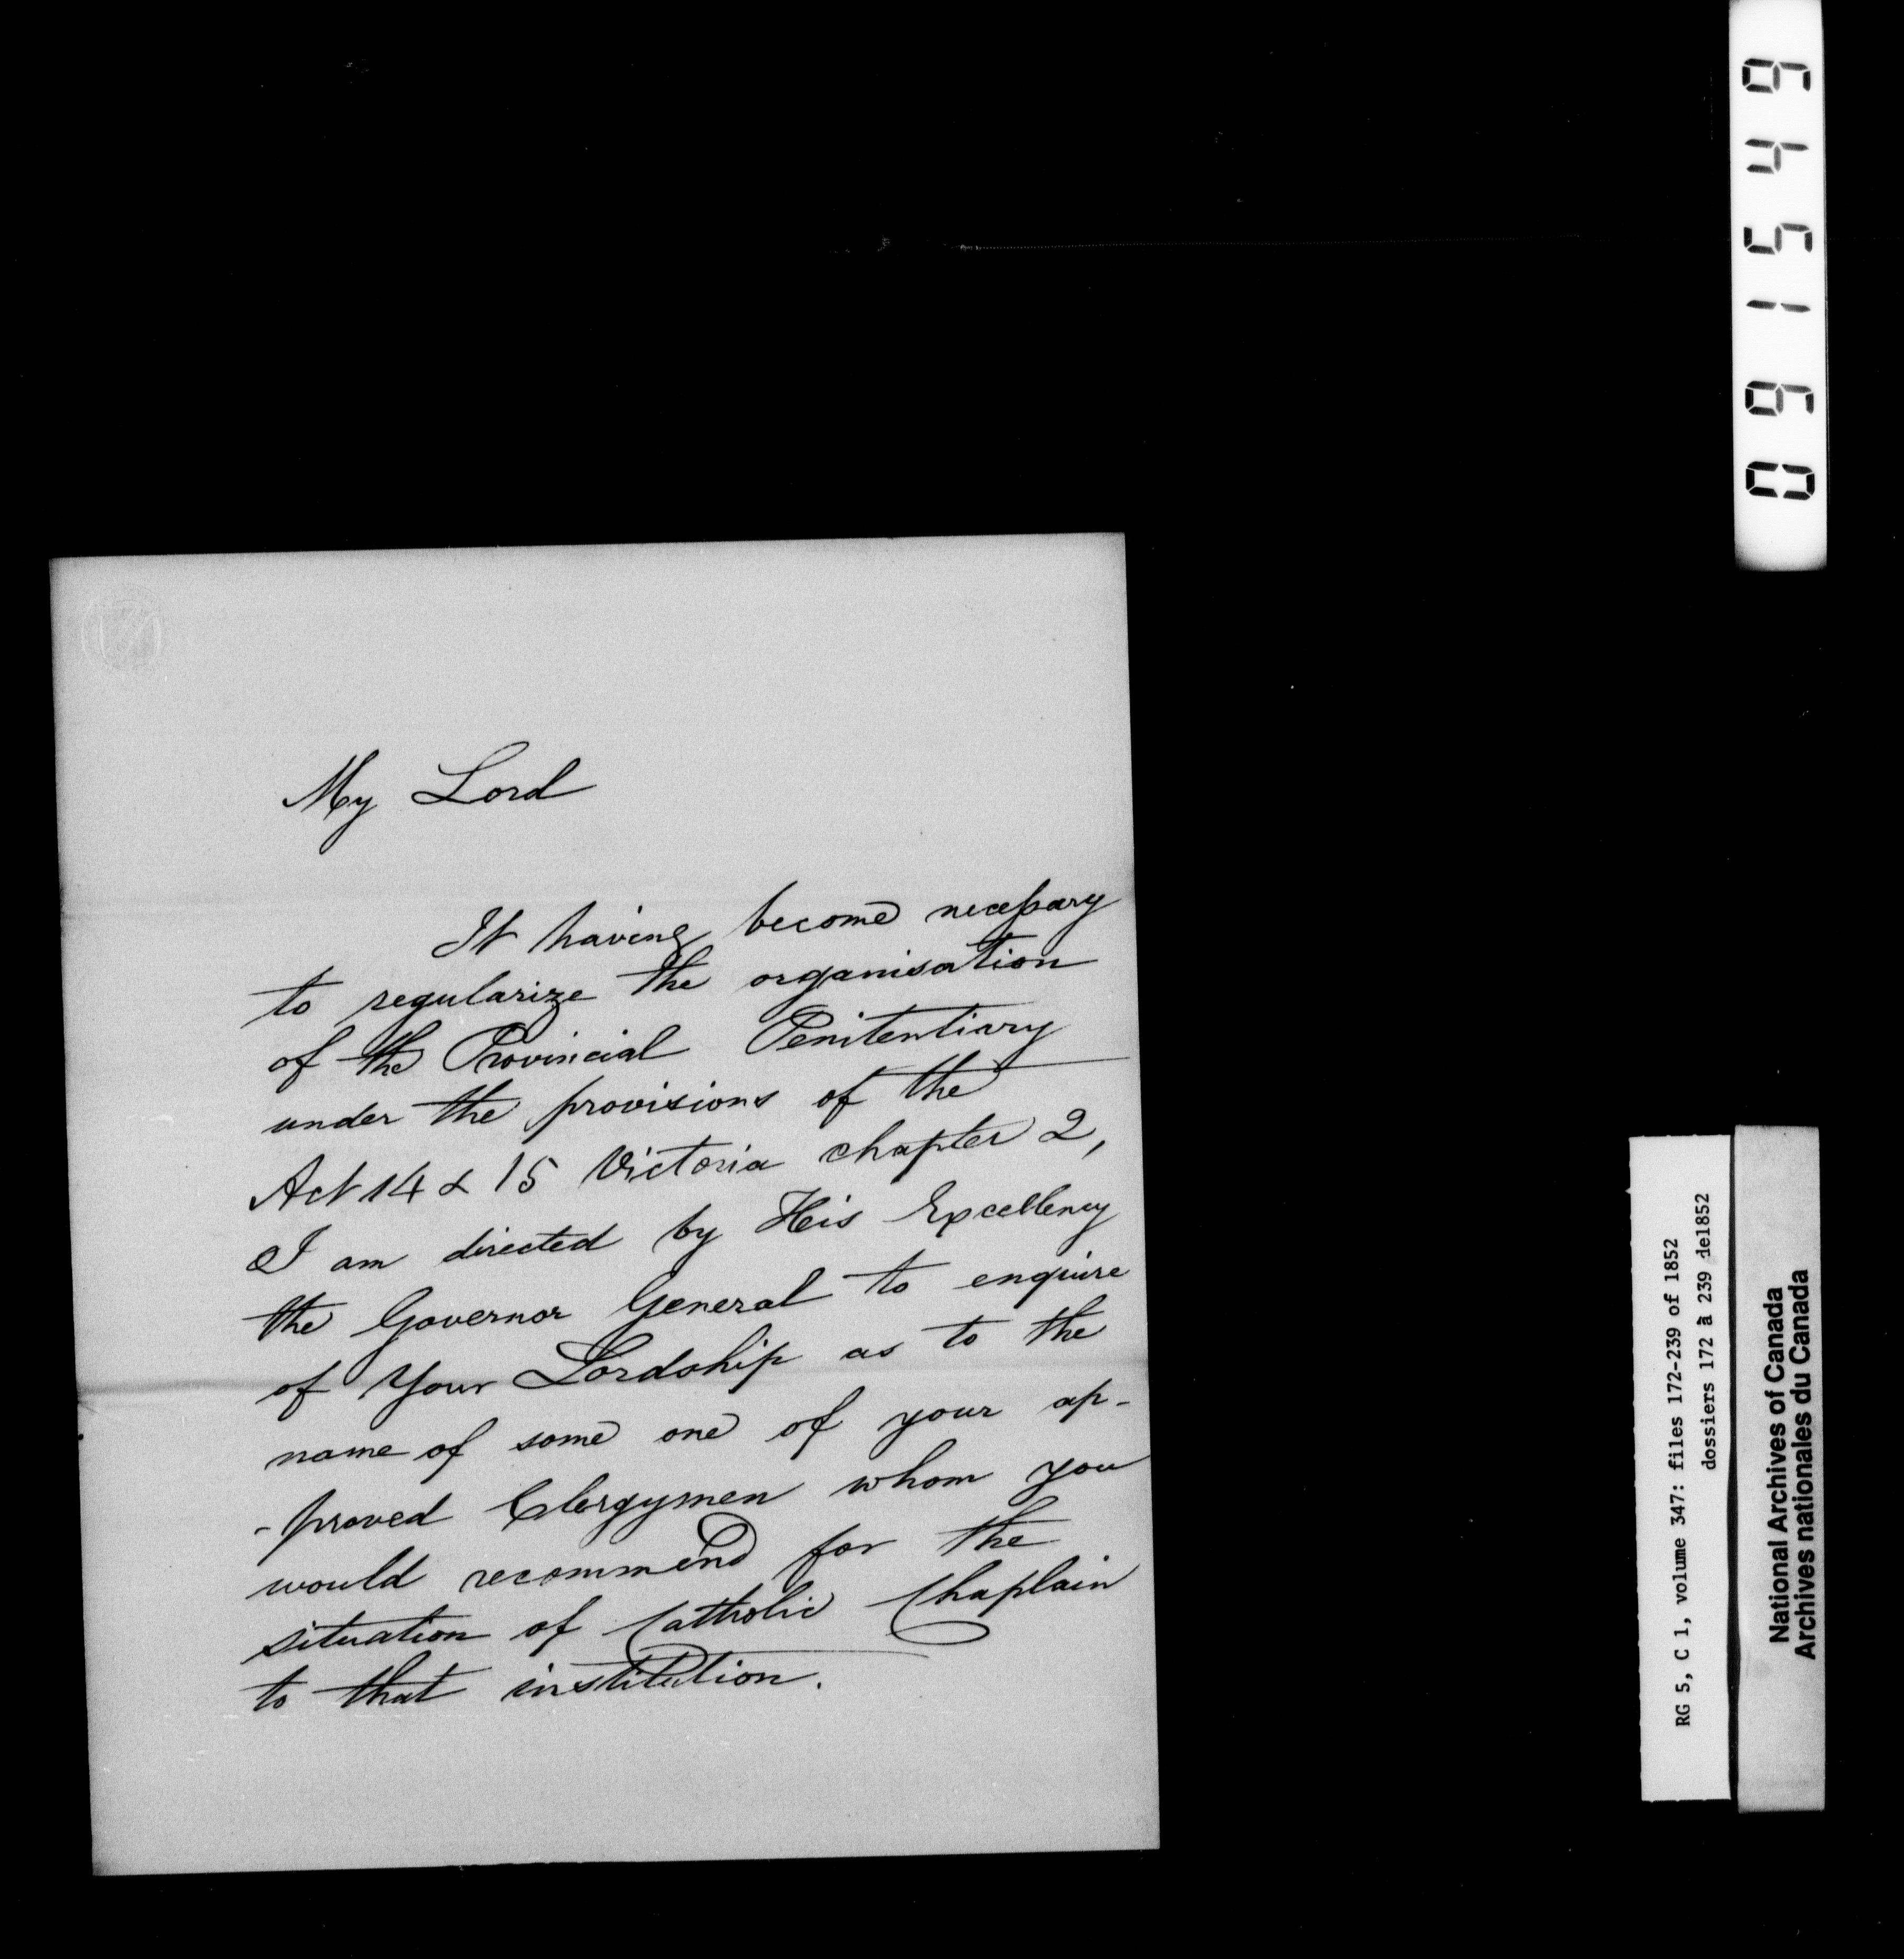 My Lord
It having become necessary
to regularize the organisation
of the Provincial Penitentiary
under the provisions of the
Act 14 & 15 Victoria chapter 2,
I am directed by His Excellency
the Governor General to enquire
of Your Lordship as to the
name of some one of your ap-
-proved Clergymen whom you
would recommend for the
situation of Catholic Chaplain
to that institution.
091549
RG 5, C 1, volume 347: files 172-239 of 1852
dossiers 172 à 239 de1852
National Archives of Canada
Archives nationales du Canada